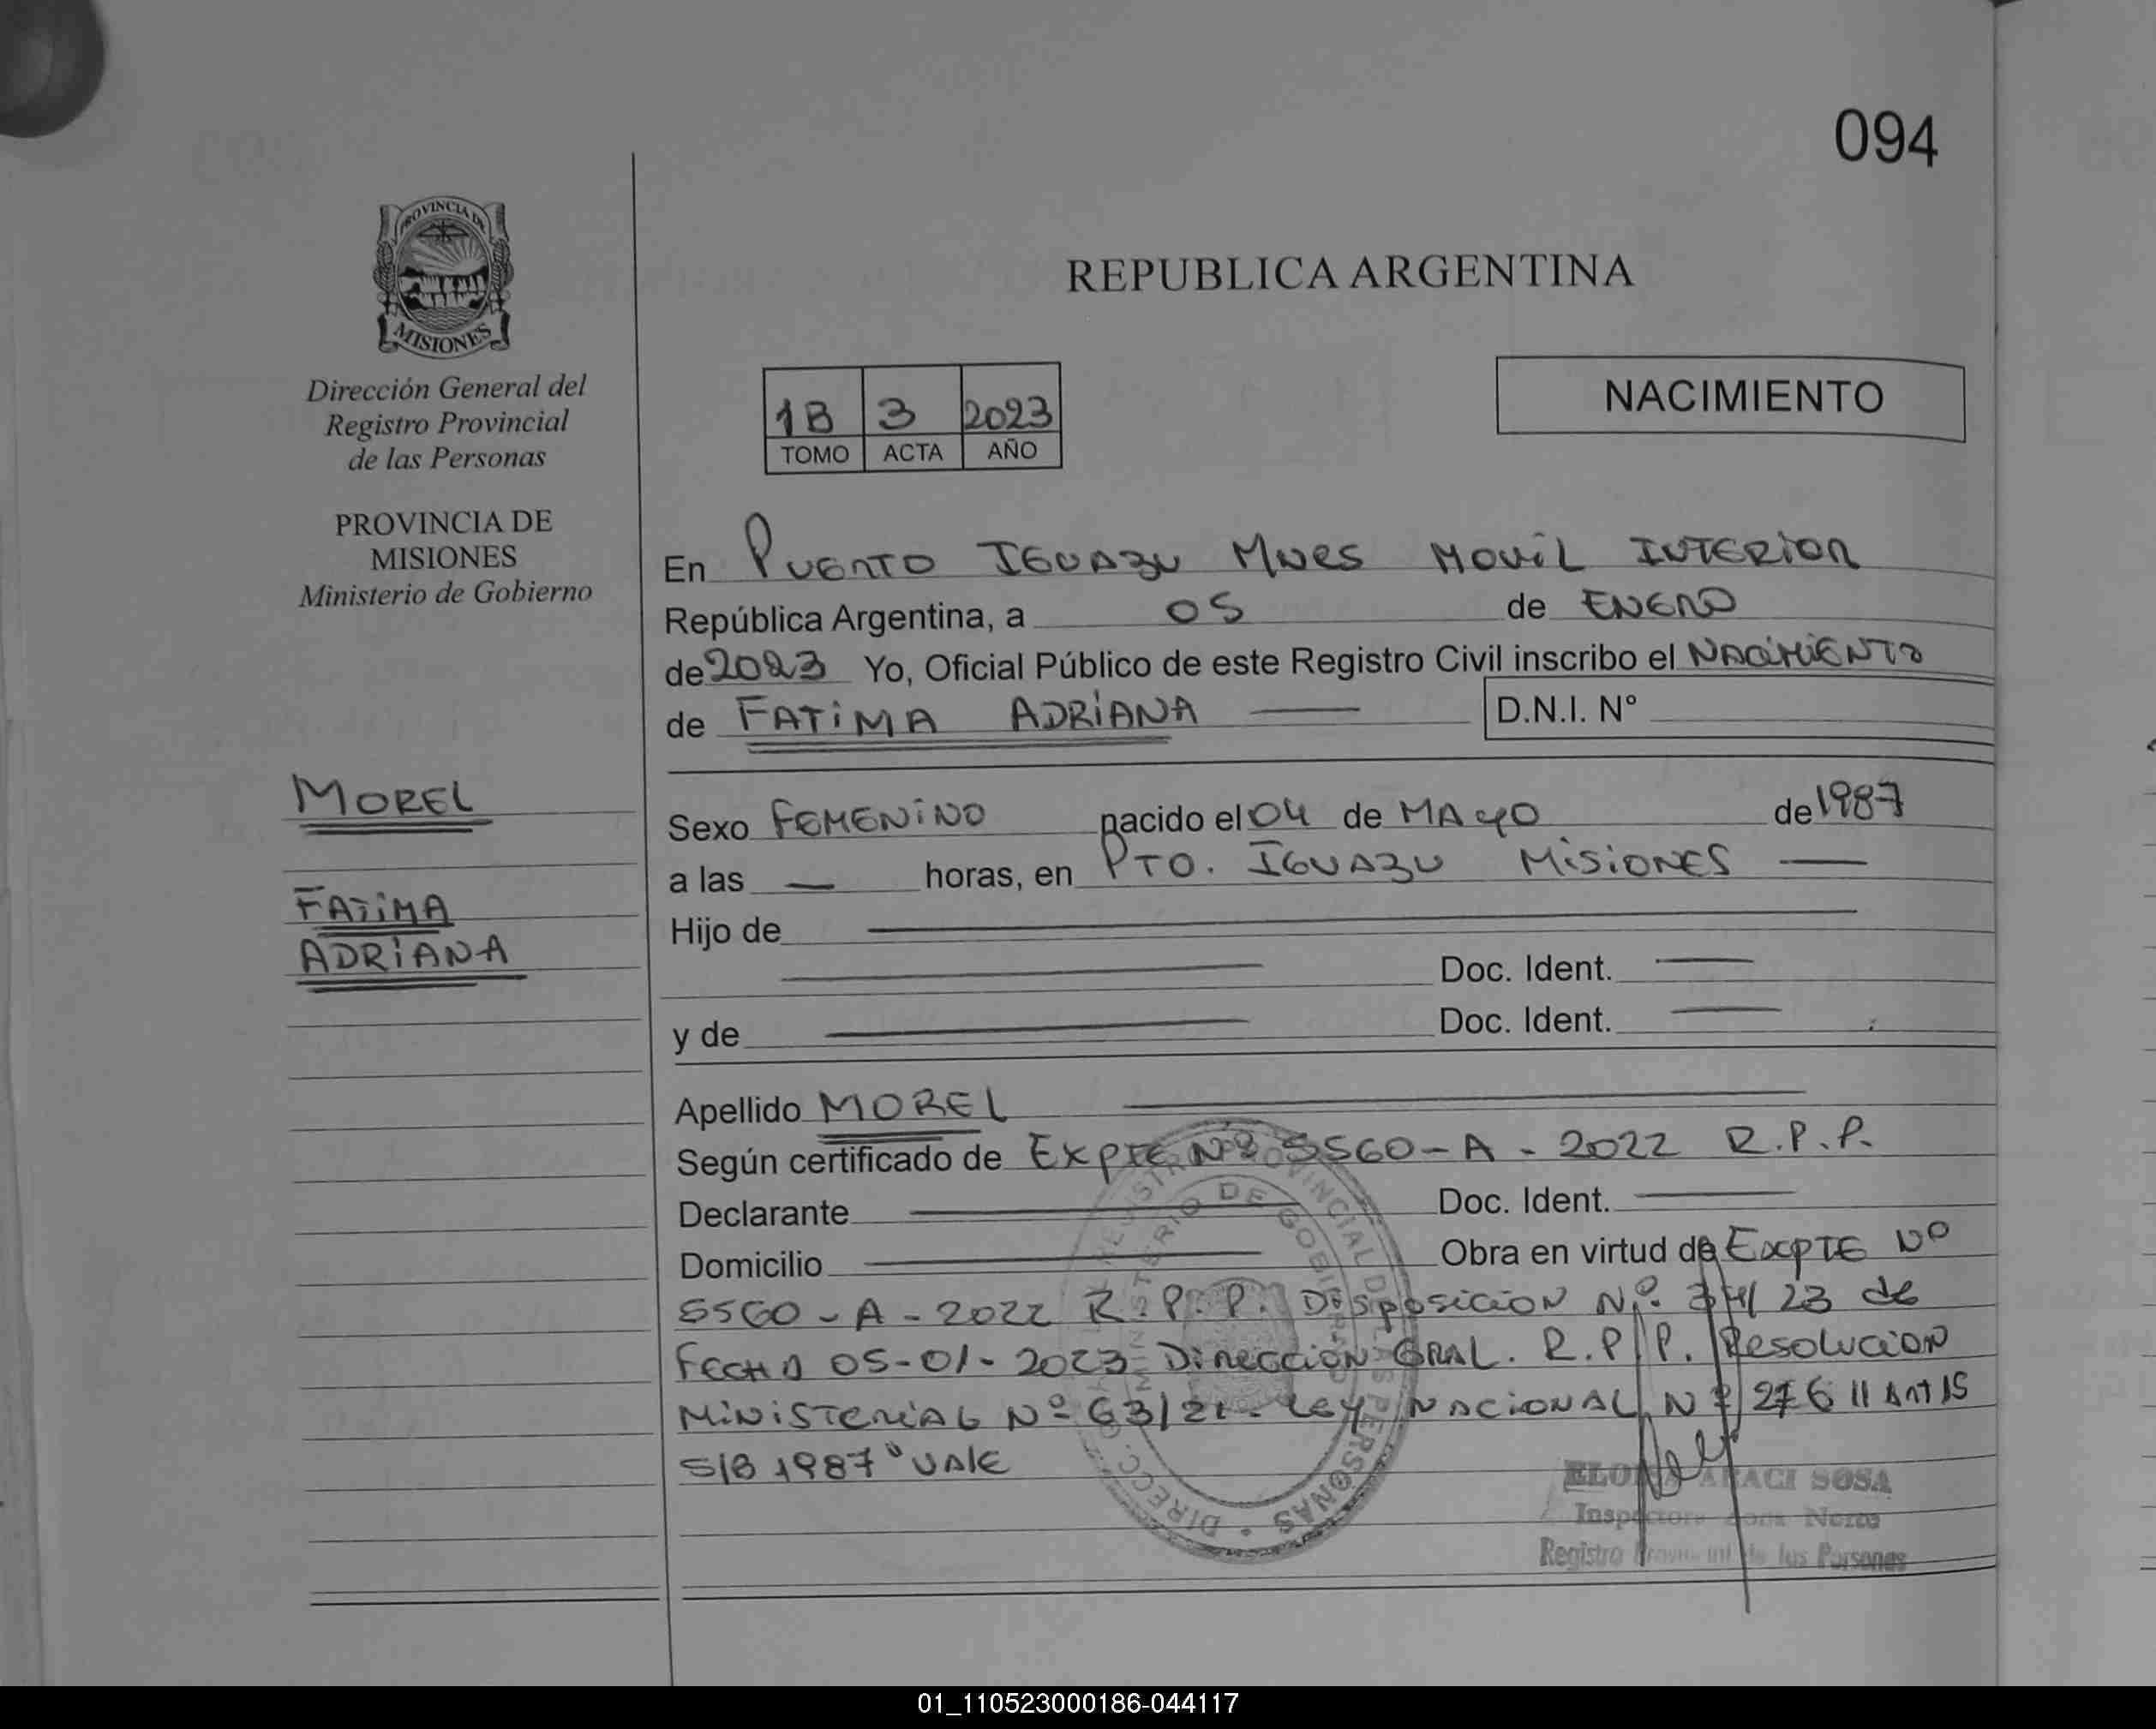 094
PROVINCIA DE
MISIONES
Dirección General del
Registro Provincial
de las Personas
PROVINCIA DE
MISIONES
Ministerio de Gobierno
MOREL
FATIMA
ADRIANA
REPUBLICA ARGENTINA
1B 3 2023
TOMO ACTA AÑO
NACIMIENTO
En PUERTO IGUAZU Mnes MOVIL INTERIOR
República Argentina, a 05 de ENERO
de 2023 Yo, Oficial Público de este Registro Civil inscribo el NACIMIENTO
de FATIMA ADRIANA D.N.I. Nº
Sexo FEMENINO nacido el 04 de MAYO de 1987
a las — horas, en PTO. IGUAZU MISIONES —
Hijo de
Doc. Ident.
y de Doc. Ident.
Apellido MOREL
Según certificado de EXPTE Nº 5560-A-2022 R.P.P.
Declarante Doc. Ident.
Domicilio Obra en virtud de EXPTE Nº
5560-A-2022 R.P.P. Disposicion Nº 23 de
FECHA 05-01-2023 Direccion GRAL. R.P.P. Resolucion
MINISTERIAL Nº 63/21- Ley NACIONAL Nº 27611 Art 15
S/B 1987 "VALE
DIRECC. GRAL. DEL REGISTRO PROVINCIAL DE LAS PERSONAS
MINISTERIO DE GOBIERNO
ARACI SOSA
Inspectora Zona Norte
Registro Provincial de las Personas
01_110523000186-044117